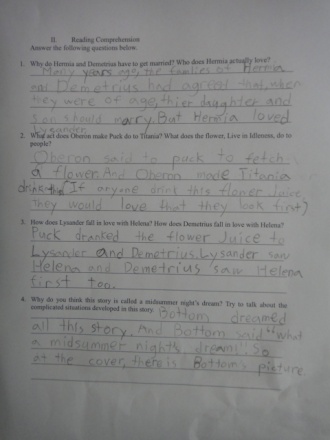 II. Reading Comprehension
Answer the following questions below.
1. Why do Hermia and Demetrius have to get married? Who does Hermia actually love?
Many years ago, the families of Hermia
and Demetrius had agreed that, when
they were of age, thier daughter and
son should marry. But Hermia loved
Lysander.
2. What act does Oberon make Puck do to Titania? What does the flower, Live in Idleness, do to
people?
Oberon said to puck to fetch
a flower. And Oberon made Titania
drink that (If anyone drink this flower juice
They would love that they look first)
3. How does Lysander fall in love with Helena? How does Demetrius fall in love with Helena?
Puck dranked the flower Juice to
Lysander and Demetrius. Lysander saw
Helena and Demetrius saw Helena
first too.
4. Why do you think this story is called a midsummer night's dream? Try to talk about the
complicated situations developed in this story.
Bottom dreamed
all this story. And Bottom said "what
a midsummer night's dream!". So
at the cover, there is Bottom's picture.